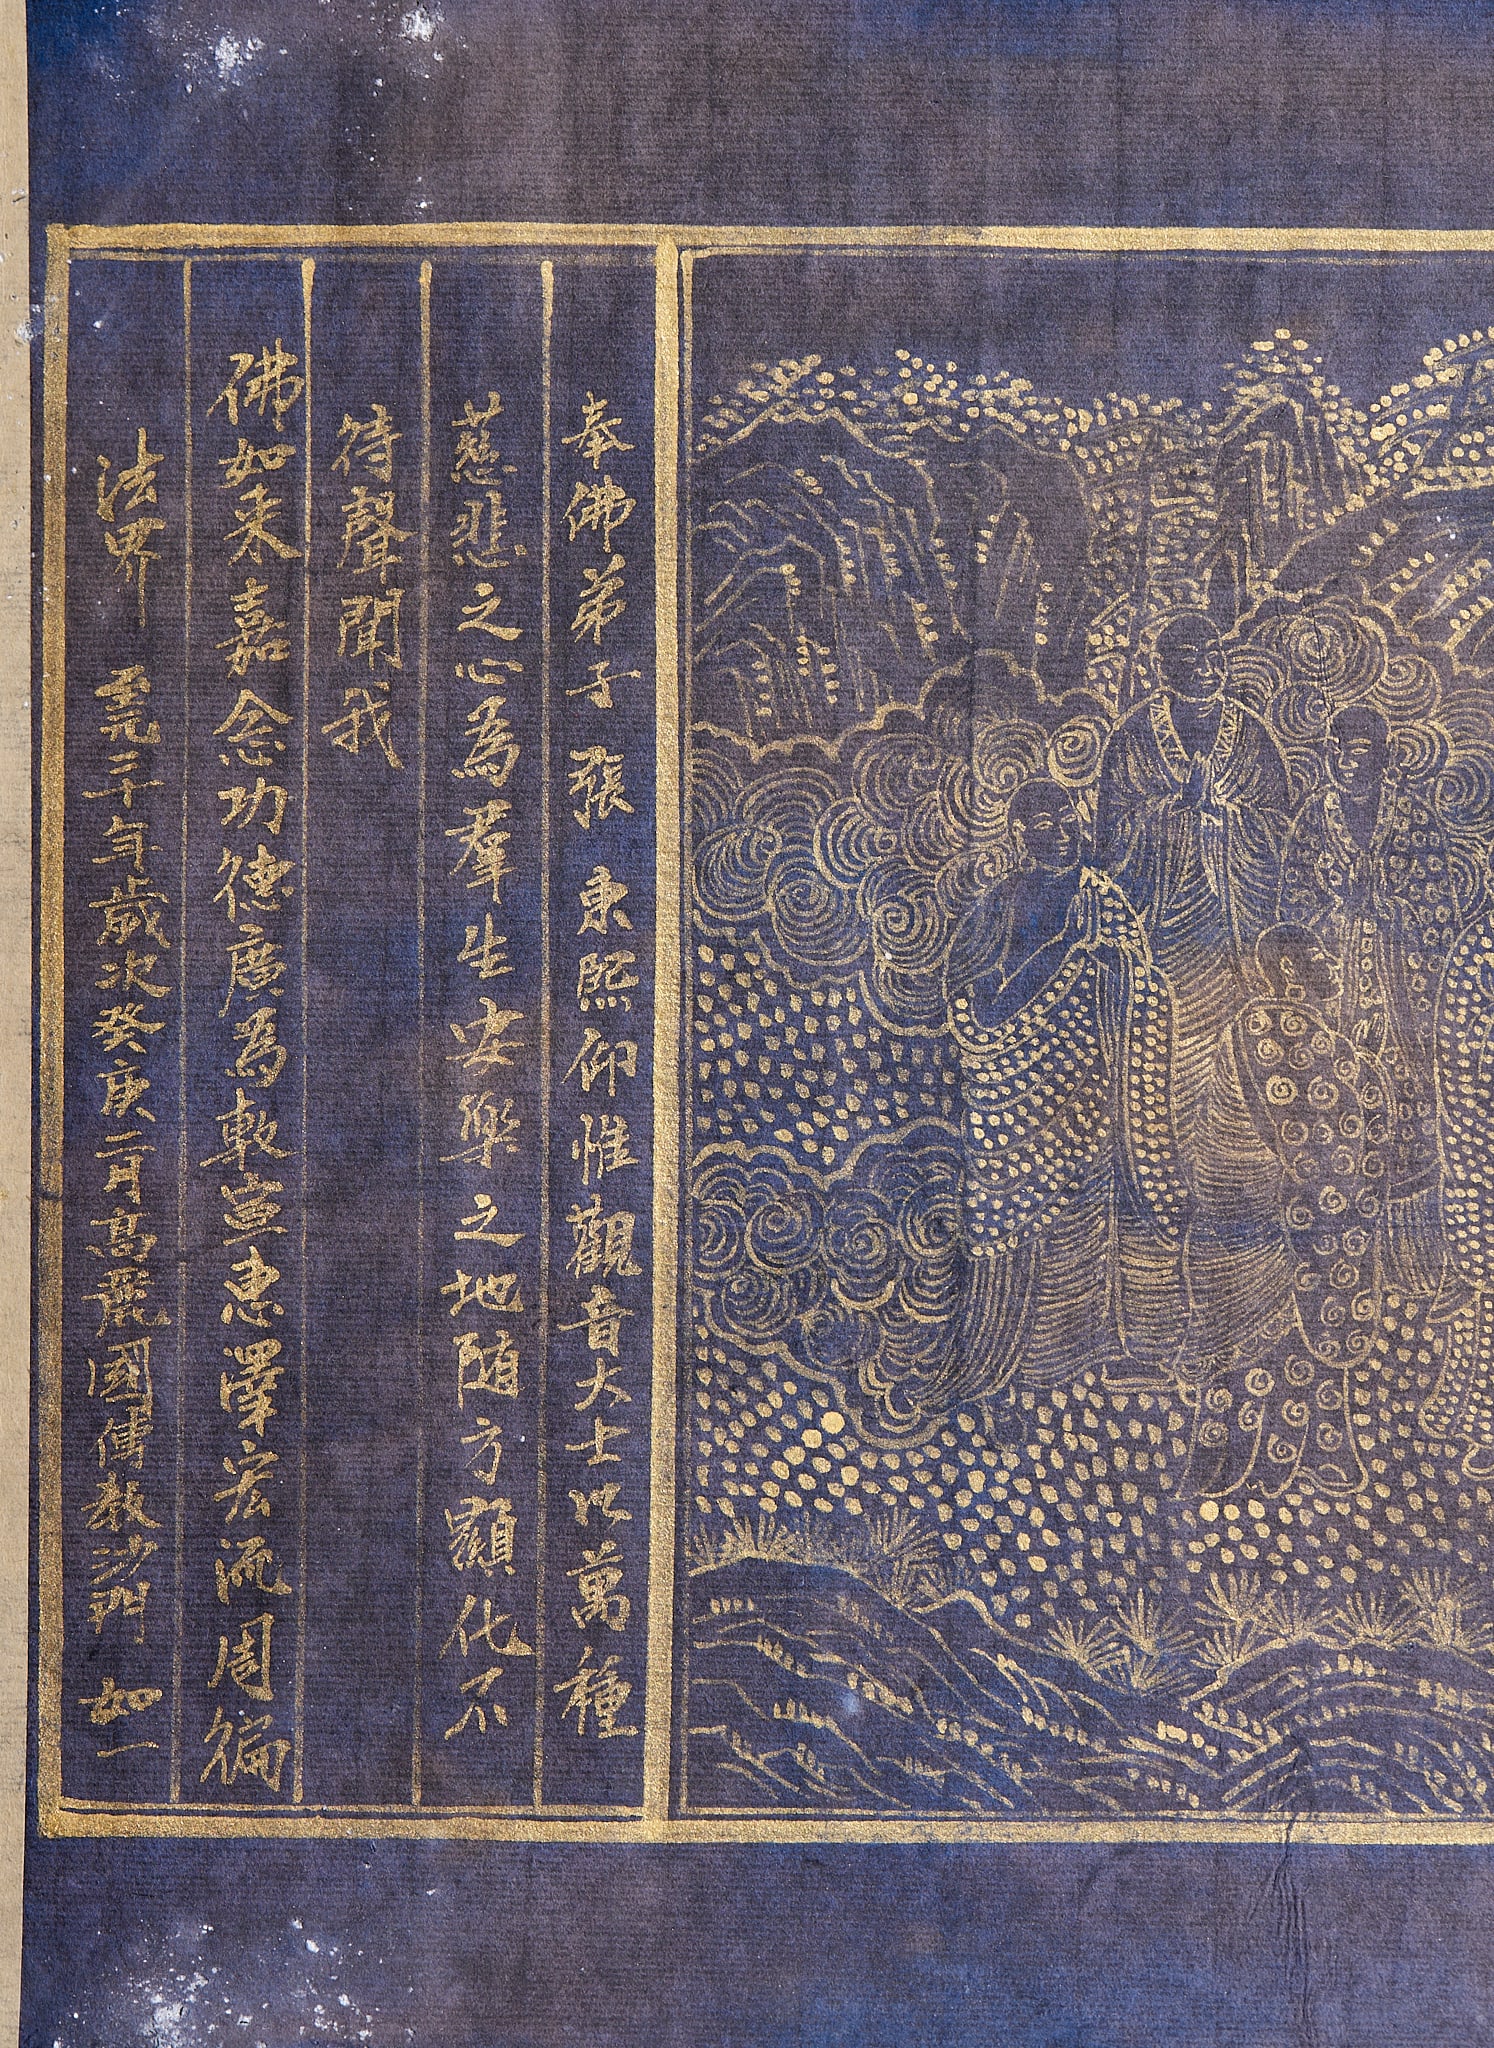 奉佛弟子張東熙仰惟觀音大士以萬種
慈悲之心為羣生安樂之地隨方顯化不
待聲聞我
佛如來嘉念功德廣為敷宣惠澤宏流周徧
法界 至元二十年歲次癸庚二月高麗國傳教沙門如一